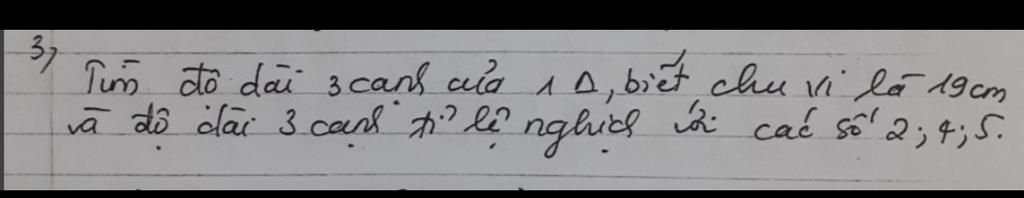 3,
Tìm độ dài 3 cạnh của 1 Δ, biết chu vi là 19cm
và độ dài 3 cạnh tỉ lệ nghịch với các số 2; 4; 5.